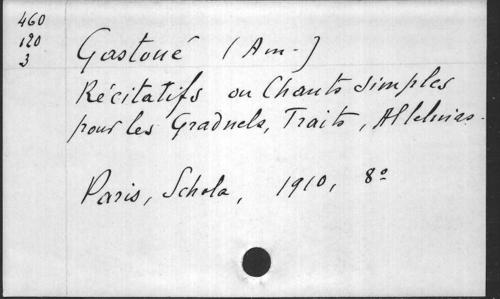 460
120
3
Gastoué (Am-)
Récitatifs ou Chants simples
pour les Graduels, Traits, Alleluias.
Paris, Schola, 1910, 8º